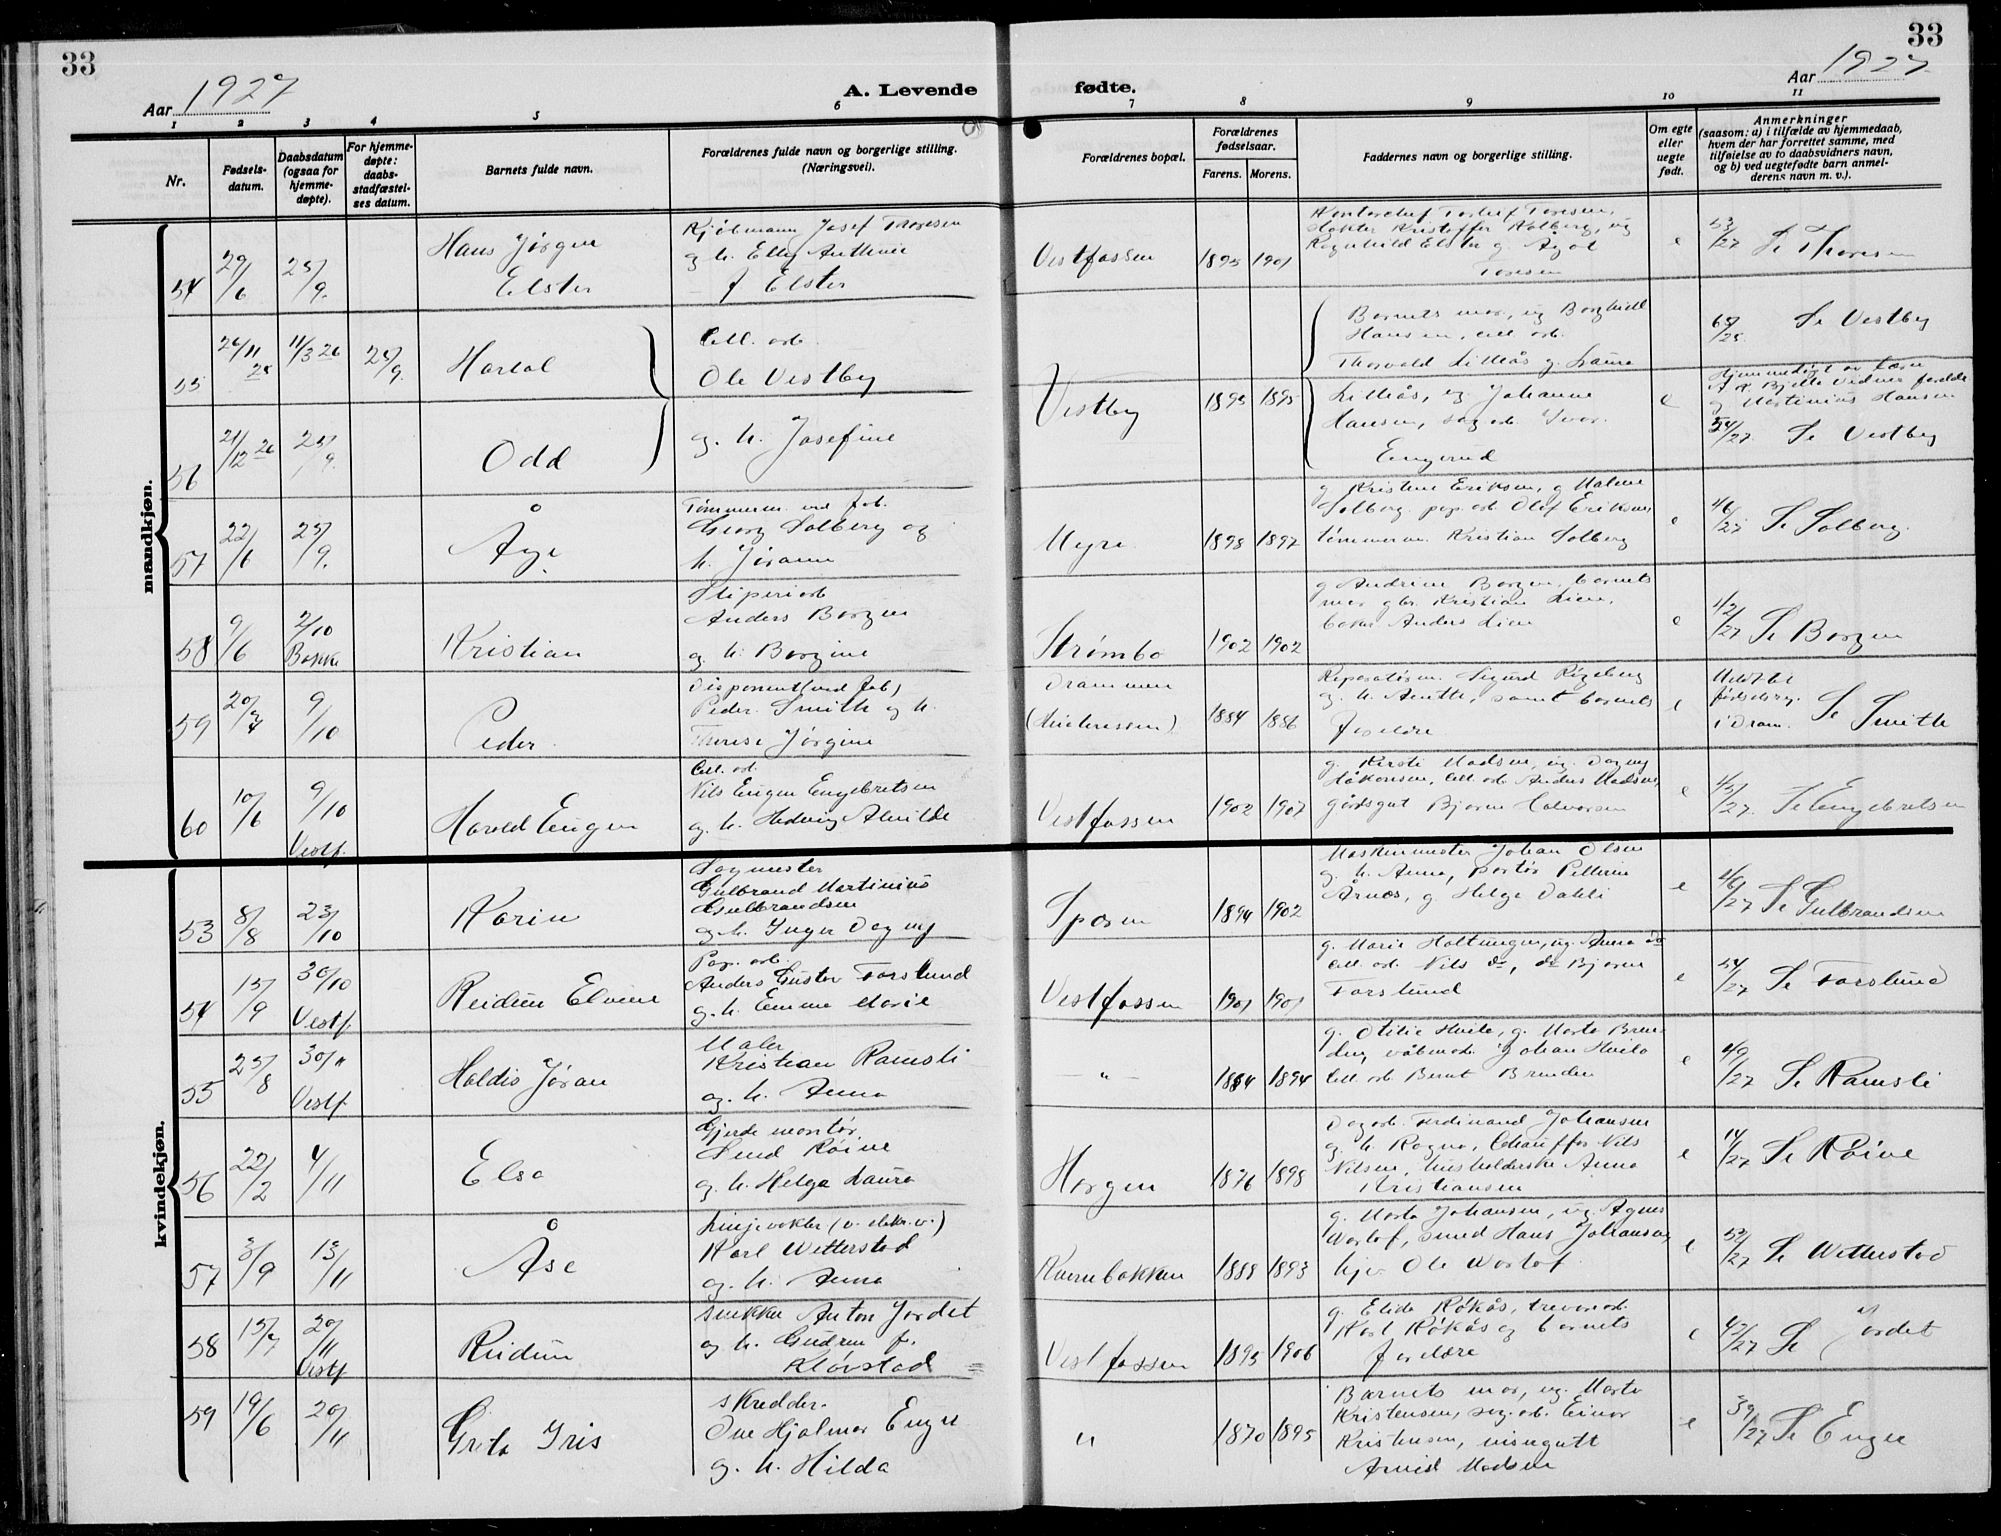 33
33
Aar 1927
A. Levende fødte.
Aar 1927
1 2 3 4 5 6 7 8 9 10 11
Nr.
Fødsels-
datum.
Daabsdatum
(ogsaa for
hjemme-
døpte).
For hjemme-
døpte:
daabs-
stadfæstel-
ses datum.
Barnets fulde navn.
Forældrenes fulde navn og borgerlige stilling.
(Næringsvei).
Forældrenes bopæl.
Forældrenes
fødselsaar.
Farens. Morens.
Faddernes navn og borgerlige stilling.
Om egte
eller
uegte
født.
Anmerkninger
(saasom: a) i tilfælde av hjemmedaab,
hvem der har forrettet samme, med
tilføielse av to daabsvidners navn,
og b) ved uegtefødte barn anmel-
derens navn m. v.).
mandkjøn.
54 29/6 25/9 Hans Jörgen
Elster
Kjöbmann Josef Thoresen
og h. Elly Anthine
f Elster
Vestfossen 1895 1901
Ragnhild Elster g. Aagot
Toresen
e
53/27 Se Thoresen
55 26/11 25 11/3 26 25/9 Harlal
Cell. arb.
Ole Vestby
Vestby 1895 1895
Barnets mor, ug Borghild
Hansen, cell. arb.
Thorvald Lillås g. Laura
Lillås, ug Johanne
Hansen, sag arb. Ivar
Engerud
e
65/25 Se Vestby
56 21/12 26 25/9 Odd
og h. Josefine
Hjemmedøpt av
g Martinius Hansen
54/27 Se Vestby
57 22/6 25/9 Åge
Tømmerm. ved fab.
Georg Solberg og
h. Jorann
Myre 1898 1897
g Kristine Eriksen, g Malene
Solberg pap. arb Olof Eriksen
tømmerm. Kristian Solberg
e
46/27 Se Solberg.
58 9/6 2/10 Bakke Kristian
Sliperiarb
Anders Borgen
og h. Borgine
Strømbo 1902 1902
g Andrine Borgen, barnets
mor gbr. Kristian Lien,
Anders Lien
e
42/27 Se Borgen
59 20/4 9/10 Peder
Disponent (ved fab)
Peder Smith og h.
Therese Jørgine
Drammen
1884 1886
Reparatörm. Sigurd Rigeberg
og h. samt barnets
foreldre
e
Meldt til
fødselsreg.
i Dram. Se Smith
60 10/6 9/10 Vestf. Harald Eugen
Cell. arb.
Nils Eugen Engebretsen
og h. Hedvig Alvilde
Vestfossen 1902 1907
g. Kirsti Madsen, ug. Dagny
Håkonsen, cell. arb Anders Madsen,
gårdsgut Bjarne Halvorsen
e
45/27 Se Engebretsen
kvindekjøn.
53 8/8 23/10 Karin
Sagmester
Gulbrand Martinius
Gulbrandsen
og h. Inger Dagny
1894 1902
Maskinmester Johan Olsen
og h. Anna, portör Pettersen
Årnes, g. Helga Dahli
e
46/27 Se Gulbrandsen
54 15/9 30/10 Vestf. Reidun Elvine
Pap. arb.
Anders Gustav Forslund
og h. Emma Marie
Vestfossen 1901 1901
g. Marie Holtungen, ug. Anna do
cell. arb. Nils do, do Bjarne
Forslund
e
54/27 Se Forslund
55 25/8 30/" Vestf. Haldis Jöran
Maler
Kristian Ramsli
og h. Anna
— " — 1884 1894
g. Otilie Hvila, g. Marta Bren-
den, Johan Hvila
cell. arb Bernt Brenden
e
49/27 Se Ramsli
56 22/2 4/11 Elsa
Gjerde montör
Röine
og h. Helga Laura
Horgen 1876 1898
Dagarb. Ferdinand Johansen
og h. Ragna, Chauffør Nils
Nilsen, husholderske Anna
Kristiansen
e
14/27 Se Röine
57 3/9 13/11 Åse
Linjevokter (v. elektr. v.)
Karl Wetterstad
og h. Anna
1888 1893
g. Marta Johansen, ug. Agnes
smed Hans Johansen,
Ole
e
52/27 Se Wetterstad
58 15/7 20/11 Vestf Reidun
snekker Anton Jordet
og h. Gudrun f.
Klövstad
Vestfossen 1895 1906
g. Elida Rökås,
Karl Rökås og barnets
foreldre
e
43/27 Se Jordet
59 19/6 20/11 Greta Iris
skredder.
Ove Hjalmar Enger
og h. Hilda
" 1870 1895
Barnets mor, ug. Marta
Kristensen, sag. arb. Einar
Kristensen, visergutt
Arvid Madsen
e
39/27 Se Enger